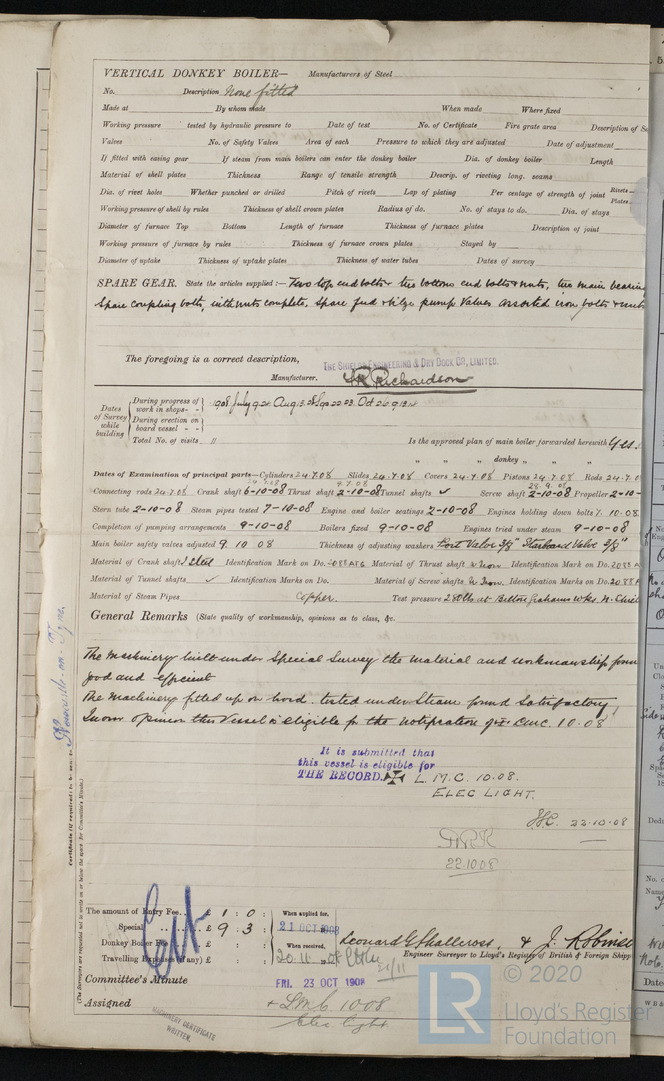 VERTICAL DONKEY BOILER— Manufacturers of Steel
No. Description None fitted
Made at By whom made When made Where fixed
Working pressure tested by hydraulic pressure to Date of test No. of Certificate Fire grate area Description of
Valves No. of Safety Valves Area of each Pressure to which they are adjusted Date of adjustment
If fitted with easing gear If steam from main boilers can enter the donkey boiler Dia. of donkey boiler Length
Material of shell plates Thickness Range of tensile strength Descrip. of riveting long. seams
Dia. of rivet holes Whether punched or drilled Pitch of rivets Lap of plating Per centage of strength of joint Rivets Plates
Working pressure of shell by rules Thickness of shell crown plates Radius of do. No. of stays to do. Dia. of stays
Diameter of furnace Top Bottom Length of furnace Thickness of furnace plates Description of joint
Working pressure of furnace by rules Thickness of furnace crown plates Stayed by
Diameter of uptake Thickness of uptake plates Thickness of water tubes Dates of survey
SPARE GEAR. State the articles supplied:— Two top end bolts & two bottom end bolts & nuts, two main bearing
Spare coupling bolts, with nuts complete, Spare feed & bilge pump Valves assorted iron bolts & nuts
The foregoing is a correct description,
THE SHIELDS ENGINEERING & DRY DOCK CO, LIMITED.
Manufacturer. Richardson
Dates of Survey while building
During progress of work in shops- - 1908 July 9.24 Aug 13. Oct 2.6.9.13
During erection on board vessel - -
Total No. of visits 11 Is the approved plan of main boiler forwarded herewith Yes
" " " donkey " " "
Dates of Examination of principal parts—Cylinders 24.7.08 Slides 24.7.08 Covers 24.7.08 Pistons 24.7.08 Rods 24.7.0
Connecting rods 24.7.08 Crank shaft 6-10-08 Thrust shaft 2-10-08 Tunnel shafts ✓ Screw shaft 2-10-08 Propeller 2-10-
Stern tube 2-10-08 Steam pipes tested 7-10-08 Engine and boiler seatings 2-10-08 Engines holding down bolts 7.10.08
Completion of pumping arrangements 9-10-08 Boilers fixed 9-10-08 Engines tried under steam 9-10-08
Main boiler safety valves adjusted 9.10 08 Thickness of adjusting washers Port Valve 3/8" Starboard Valve
Material of Crank shaft I Steel Identification Mark on Do. 2088 ATG Material of Thrust shaft W Iron Identification Mark on Do. 2088
Material of Tunnel shafts ✓ Identification Marks on Do. Material of Screw shafts W Iron Identification Marks on Do. 2088
Material of Steam Pipes Copper. Test pressure 280 lbs at
General Remarks (State quality of workmanship, opinions as to class, &c.
The Machinery built under Special Survey the material and workmanship found
good and efficient
The Machinery fitted up on board. tested under Steam found Satisfactory,
In our opinion this Vessel is eligible for the notification of ✠ LMC. 10.08
It is submitted that
this vessel is eligible for
THE RECORD. ✠ L.M.C. 10.08.
ELEC LIGHT.
22-10-08
22.10.08
The amount of Entry Fee. . £ 1 : 0 :
Special . . . . £ 9 : 3 :
Donkey Boiler Fee . . £ : :
Travelling Expenses (if any) £ : :
When applied for.
21 OCT 1908
When received.
20.11
Leonard G Shallcross, & J. Robinson
Engineer Surveyor to Lloyd's Register of British & Foreign Shipp
Committee's Minute FRI. 23 OCT 1908
Assigned + LMC 10 08
Elec light
MACHINERY CERTIFICATE
WRITTEN.
Certificate (if required) to be sent to Newcastle-on-Tyne.
(The Surveyors are requested not to write on or below the space for Committee's Minute.)
LR
© 2020
Lloyd's Register
Foundation